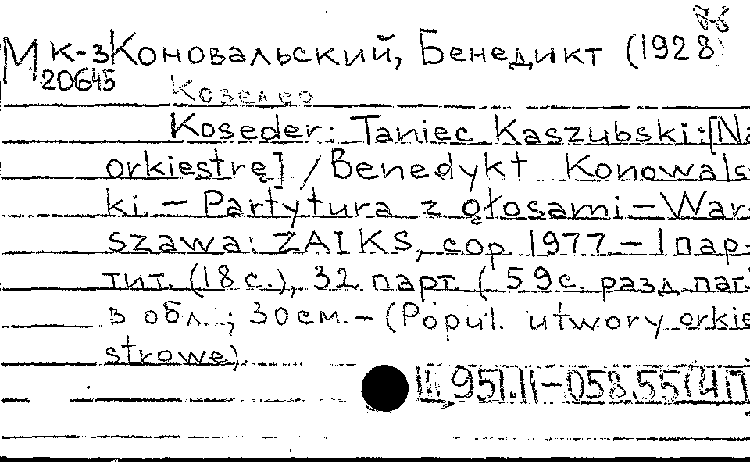 76
М к-з Коновальский, Бенедикт (1928
20645
Козедер
Koseder: Taniec Kaszubski:[Na
orkiestrę] / Benedykt Konowals-
ki. – Partytura z głosami – War-
szawa: ZAIKS, cop. 1977 – 1 пар-
тит. (18 с.), 32 парт. ( 59 с. разд. паг.)
в обл. ; 30 см. – (Popul. utwory orkie
strowe).
Ш 951.11–058.55(4П